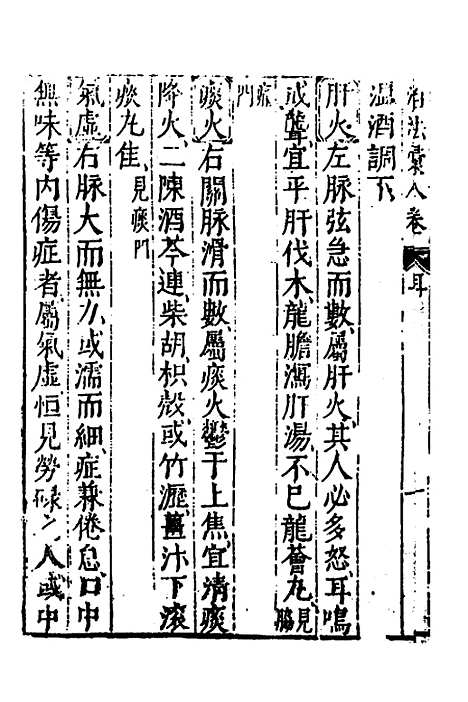 治法彙八卷 耳 一
温酒調下
肝火左脉弦急而數屬肝火其人必多怒耳鳴
或聾宜平肝伐木龍膽瀉肝湯不已龍薈丸見脇
痛門
痰火右關脉滑而數屬痰火鬱于上焦宜清痰
降火二陳酒芩連柴胡枳殼或竹瀝薑汁下滚
痰丸佳見痰門
氣虛右脉大而無力或濡而細症兼倦怠口中
無味等内傷症者屬氣虛恒見勞碌之人或中